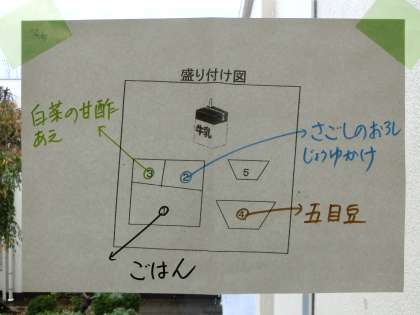 盛り付け図
牛乳
白菜の甘酢
あえ
さごしのおろし
じょうゆかけ
③
②
5
①
④
五目豆
ごはん